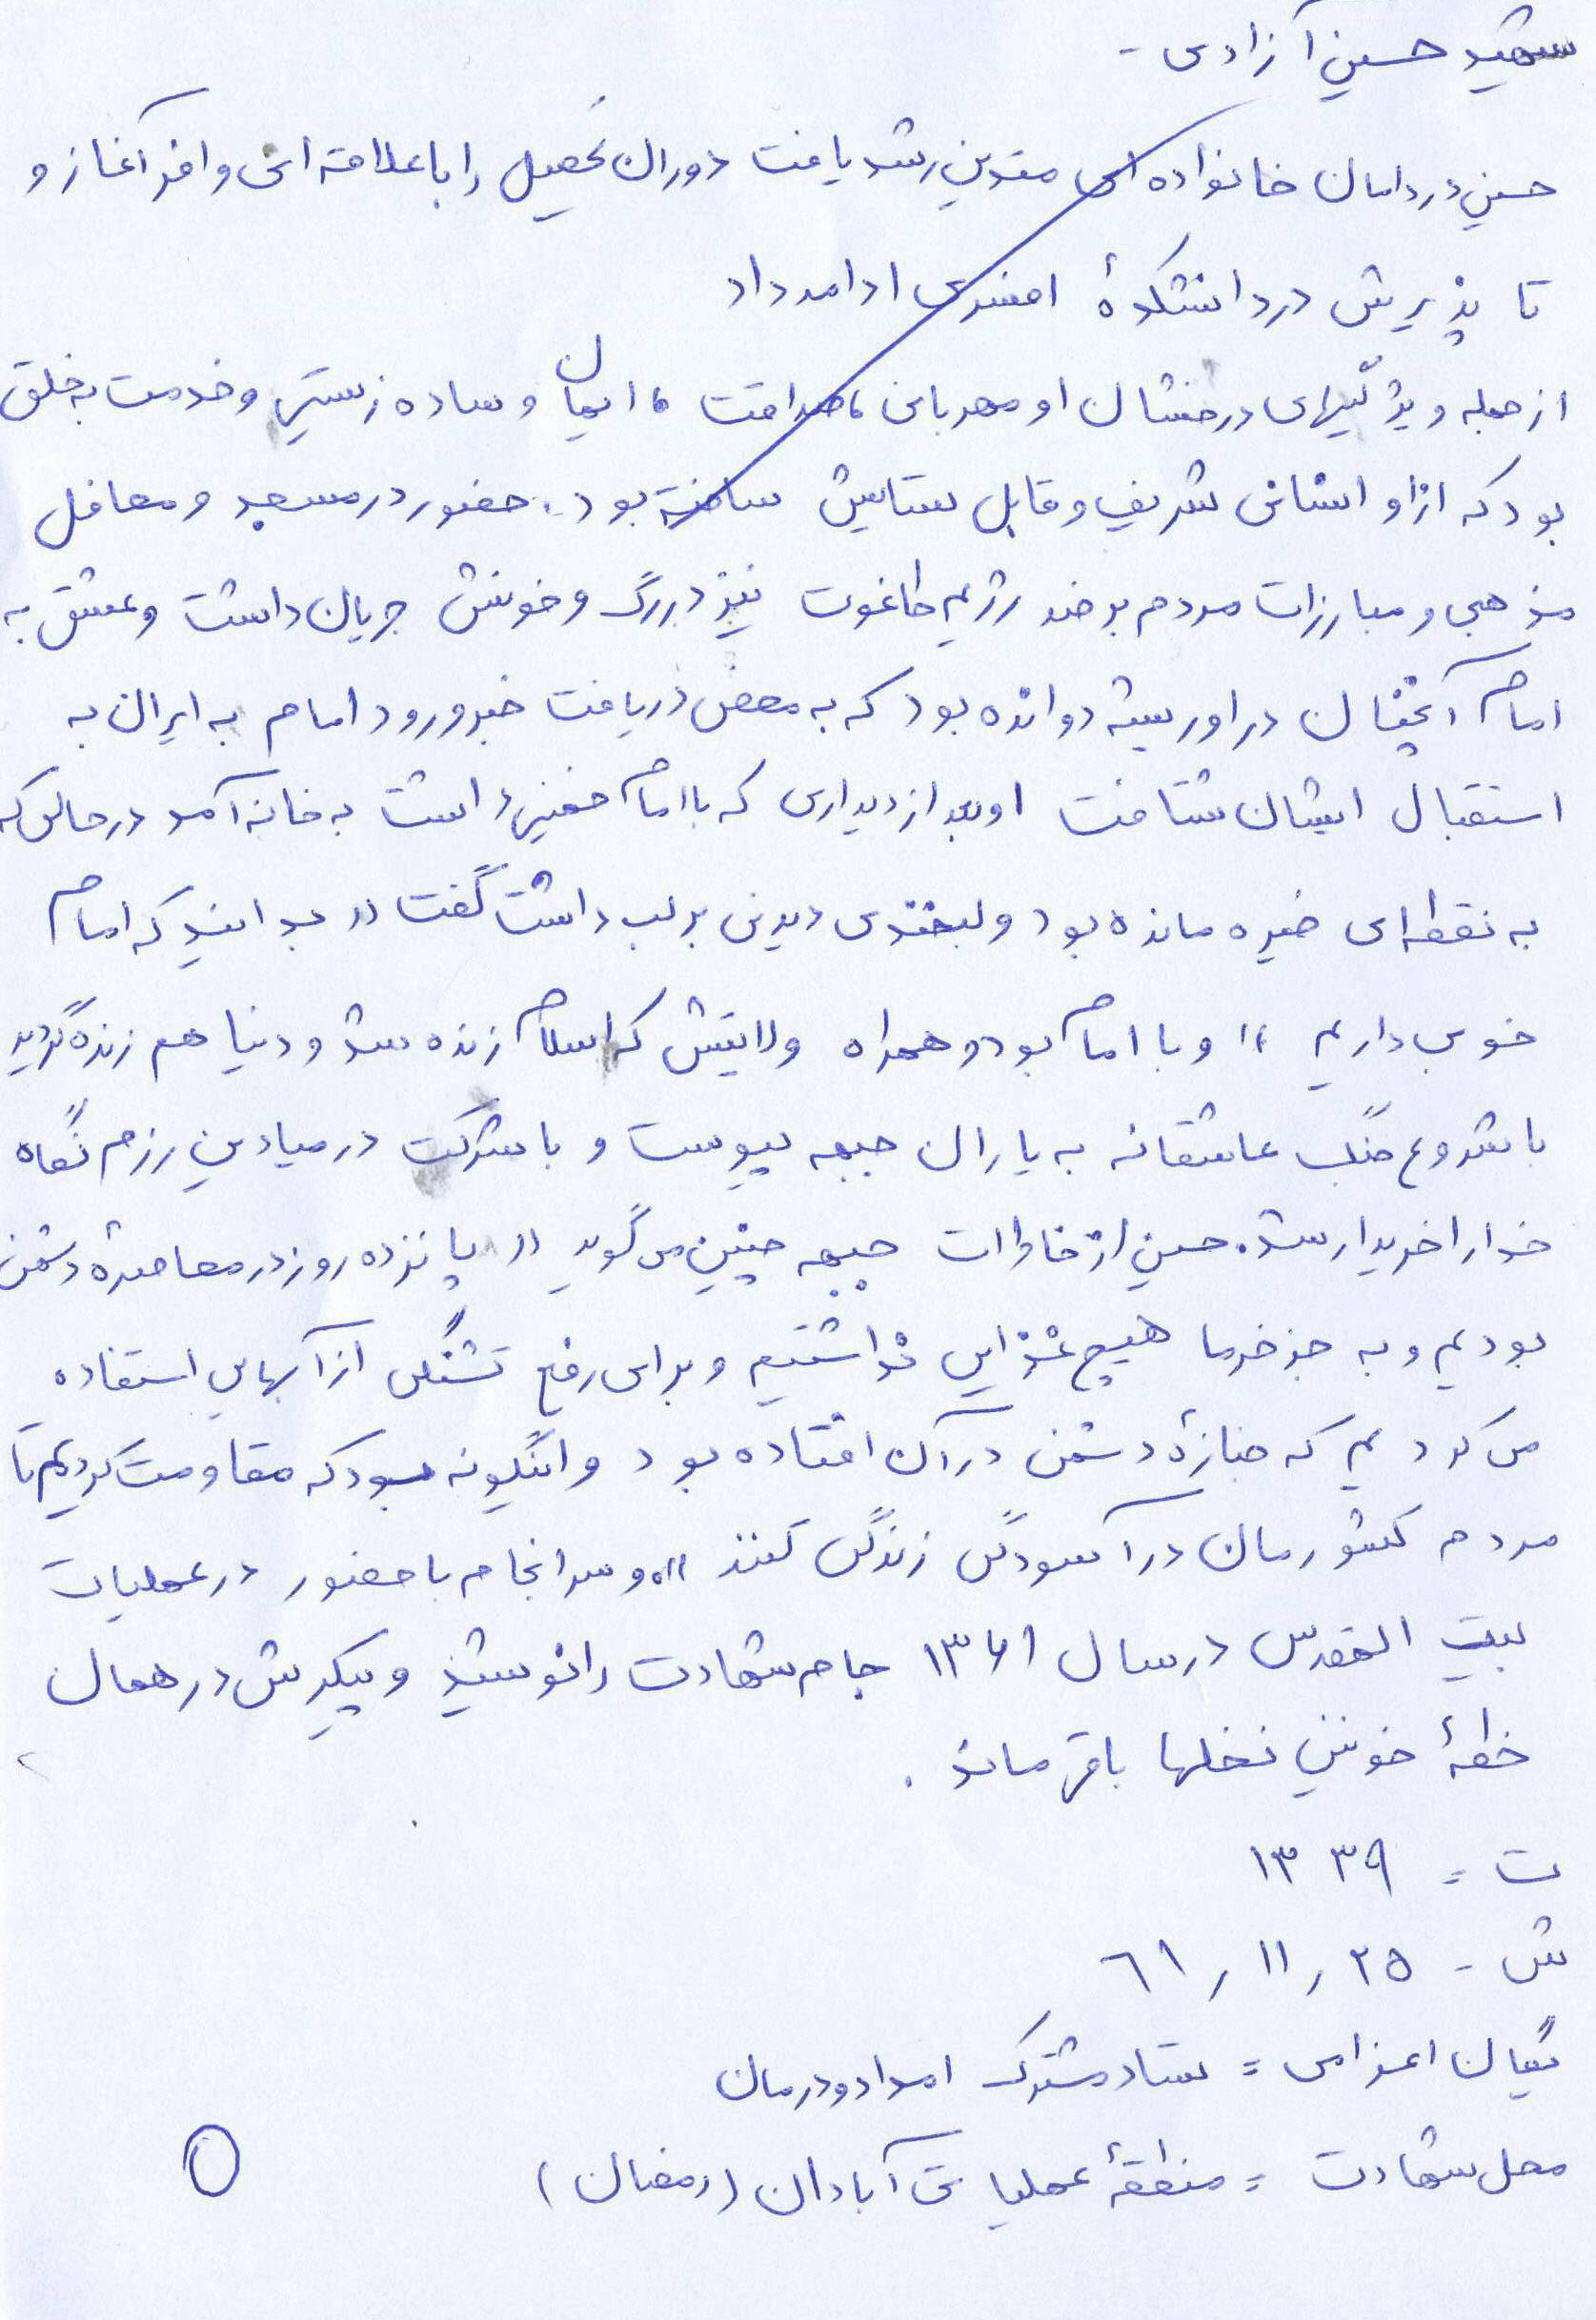 شهید حسین آزادی -
حسین در دامان خانواده ای متدین رشد یافت دوران تحصیل را با علاقه ای وافر آغاز و
تا پذیرش در دانشکدهٔ افسری ادامه داد
از جمله ویژگیهای درخشان او مهربانی، صداقت، ایمان و ساده زیستی و خدمت به خلق
بود که از او انسانی شریف و قابل ستایش ساخته بود. حضور در مسجد و محافل
مذهبی و مبارزات مردم بر ضد رژیم طاغوت نیز در رگ و خونش جریان داشت و عشق به
امام آنچنان در او ریشه دوانده بود که به محض دریافت خبر ورود امام به ایران به
استقبال ایشان شتافت او بعد از دیداری که با امام خمینی داشت به خانه آمد در حالی که
به نقطه ای خیره مانده بود و لبخندی دیدنی بر لب داشت گفت «بدانید که امام
خوبی داریم» و با امام بود و همراه ولایتش که اسلام زنده شد و دنیا هم زنده گردید
با شروع جنگ عاشقانه به یاران جبهه پیوست و با شرکت در میادین رزم نگاه
خدا را خریدار شد. حسین از خاطرات جبهه چنین می گوید «پانزده روز در محاصرهٔ دشمن
بودیم و به جز خرما هیچ غذایی نداشتیم و برای رفع تشنگی از آبهایی استفاده
می کردیم که جنازهٔ دشمن در آن افتاده بود و اینگونه بود که مقاومت کردیم تا
مردم کشورمان در آسودگی زندگی کنند». و سرانجام با حضور در عملیات
بیت المقدس در سال ۱۳۶۱ جام شهادت را نوشید و پیکرش در همان
خطهٔ خونین نخلها باقی ماند.
ت = ۱۳۳۹
ش - ۲۵ / ۱۱ / ٦۱
یگان اعزامی = ستاد مشترک امداد و درمان
محل شهادت = منطقهٔ عملیاتی آبادان (رمضان)